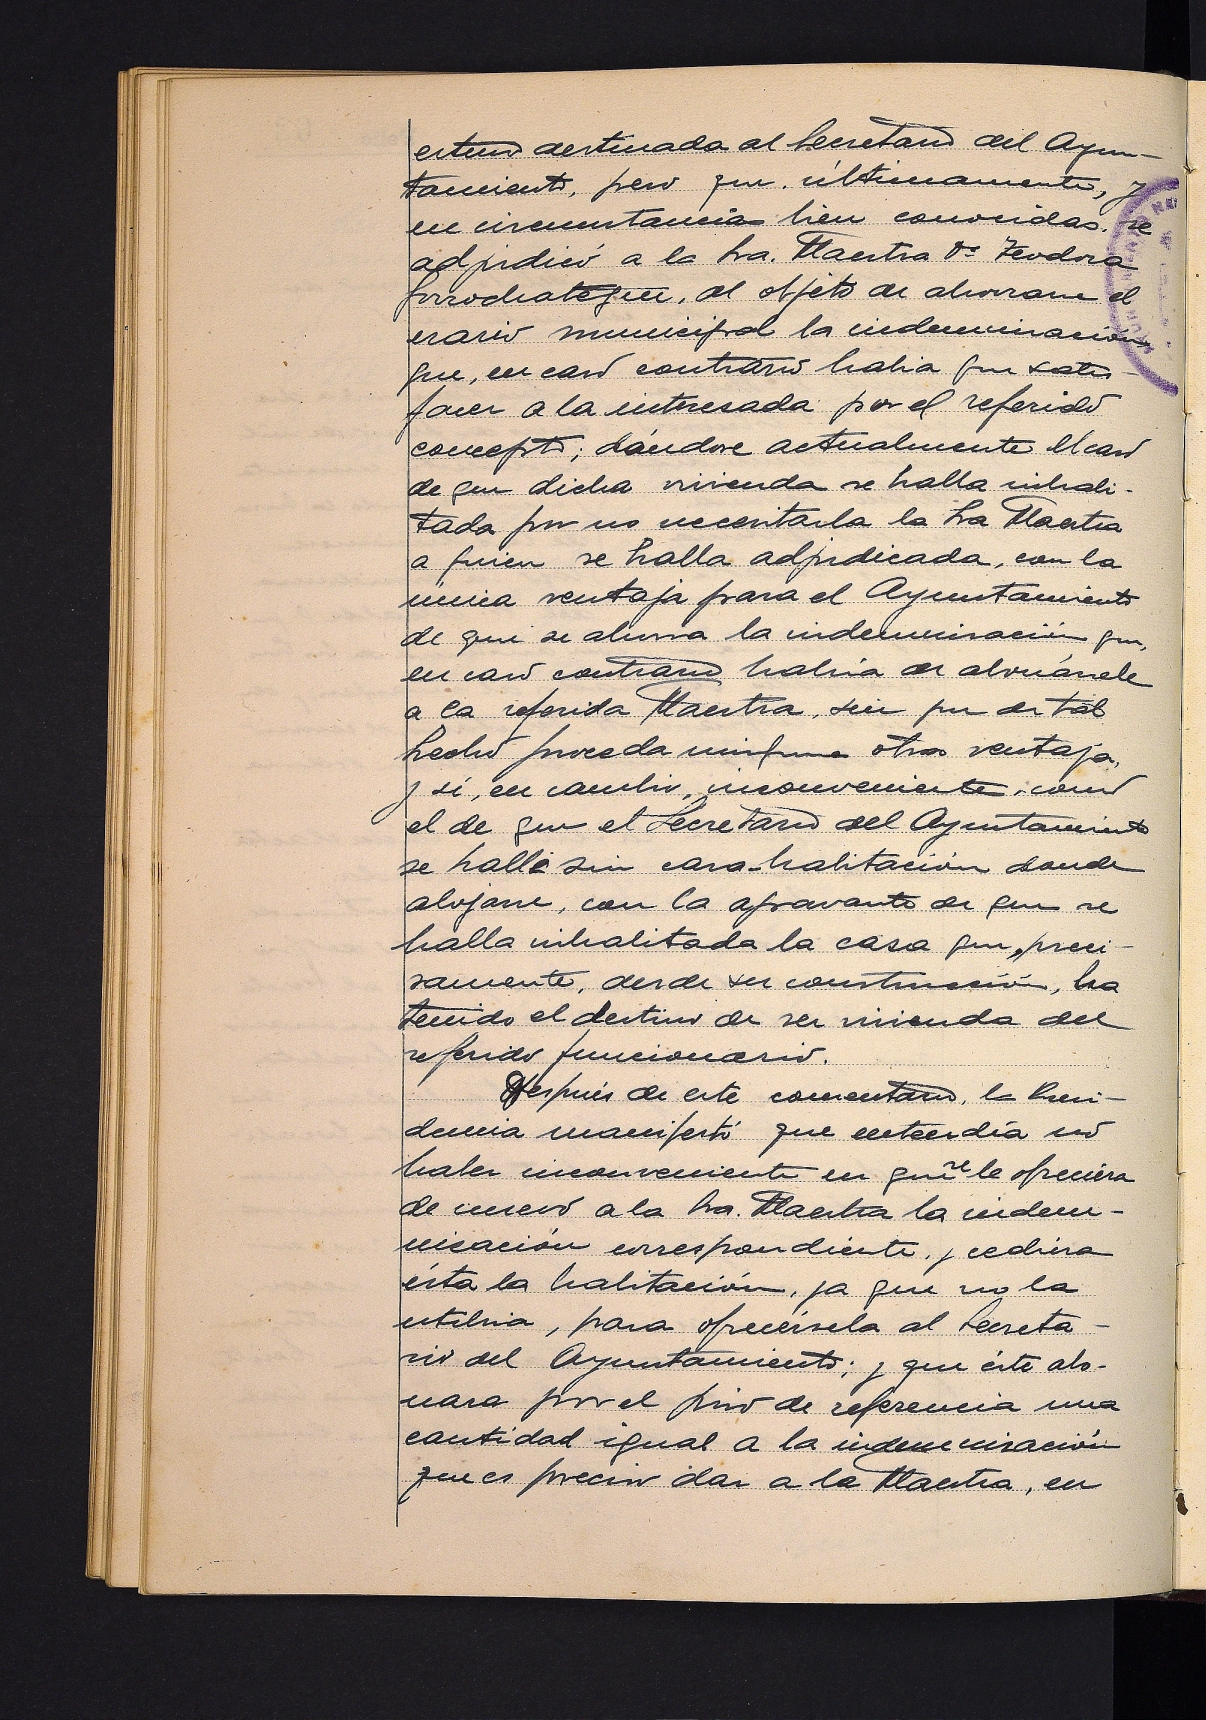 estuvo destinada al Secretario del Ayun-
tamiento, pero que, últimamente, y
en circunstancias bien conocidas, se
adjudicó a la Sra. Maestra Dª Teodora
Gorrochategui, al objeto de ahorrarse el
erario municipal la indemnización
que, en caso contrario había que satis-
facer a la interesada por el referido
concepto; dándose actualmente el caso
de que dicha vivienda se halla inhabi-
tada por no necesitarla la Sra Maestra
a quien se halla adjudicada, con la
única ventaja para el Ayuntamiento
de que se ahorra la indemnización que,
en caso contrario habria de abonársele
a la referida Maestra, sin que de tal
hecho proceda ninguna otra ventaja,
y sí, en cambio, inconveniente, como
el de que el Secretario del Ayuntamiento
se halle sin casa-habitación donde
alojarse, con la agravante de que se
halla inhabitada la casa que, preci-
samente, desde su construcción, ha
tenido el destino de ser vivienda del
referido funcionario.
Después de este comentario, la Presi-
dencia manifestó que entendía no
haber inconveniente en que se le ofreciera
de nuevo a la Sra. Maestra la indem-
nización correspondiente, y cediera
ésta la habitación, ya que no la
utiliza, para ofrecérsela al Secreta-
rio del Ayuntamiento; y que éste abo-
nara por el piso de referencia una
cantidad igual a la indemnización
que es preciso dar a la Maestra, en